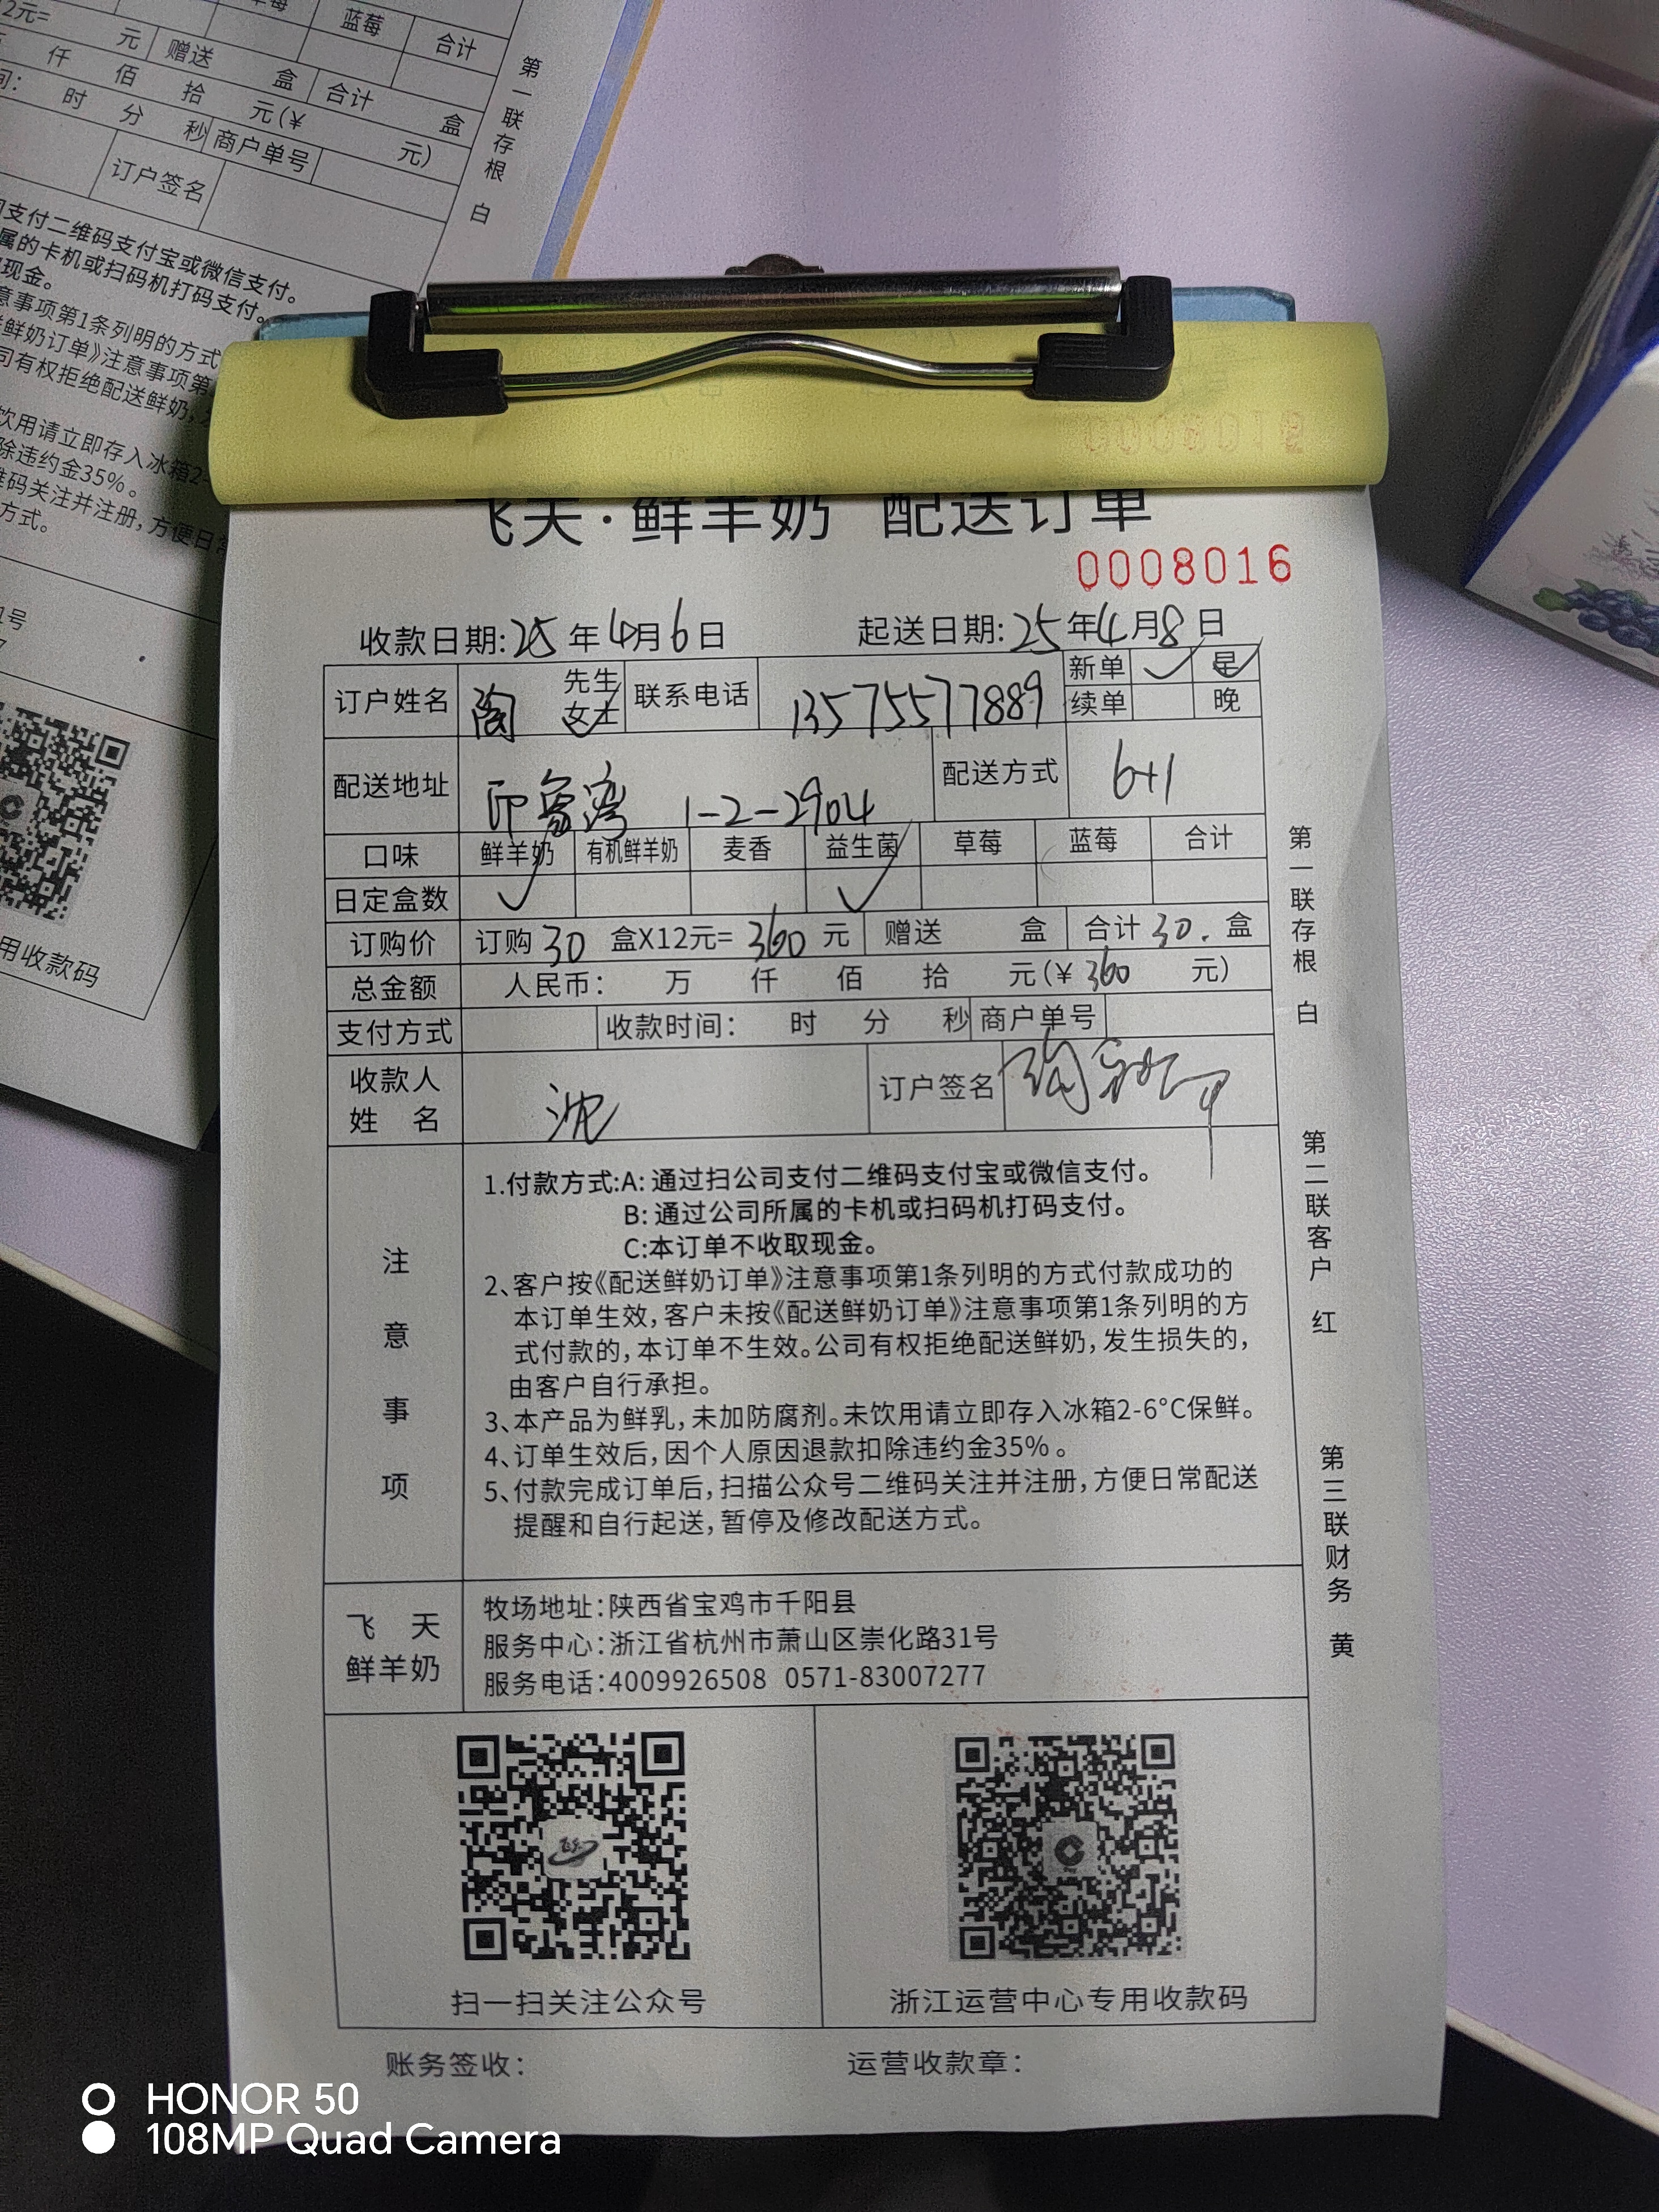 12元= 蓝莓 合计
元 赠送 盒 合计 盒
仟 佰 拾 元(¥ 元)
时 分 秒 商户单号
订户签名
第一联存根 白
支付二维码支付宝或微信支付。
属的卡机或扫码机打码支付。
现金。
意事项第1条列明的方式
鲜奶订单》注意事项第
司有权拒绝配送鲜奶,
饮用请立即存入冰箱2-
除违约金35%。
维码关注并注册,方便日常
方式。
1号
用收款码
0008012
飞天·鲜羊奶 配送订单
0008016
收款日期:25年4月6日 起送日期:25年4月8日
订户姓名 陶 先生 女士 联系电话 13575577889 新单 ✓ 早
续单 晚
配送地址 印象湾 1-2-2904 配送方式 6+1
口味 鲜羊奶 有机鲜羊奶 麦香 益生菌 草莓 蓝莓 合计
日定盒数 ✓ ✓
订购价 订购30盒X12元=360元 赠送 盒 合计30.盒
总金额 人民币: 万 仟 佰 拾 元(¥360 元)
支付方式 收款时间: 时 分 秒 商户单号
收款人姓 名 沈 订户签名
注意事项
1.付款方式:A:通过扫公司支付二维码支付宝或微信支付。
B:通过公司所属的卡机或扫码机打码支付。
C:本订单不收取现金。
2、客户按《配送鲜奶订单》注意事项第1条列明的方式付款成功的
本订单生效,客户未按《配送鲜奶订单》注意事项第1条列明的方
式付款的,本订单不生效。公司有权拒绝配送鲜奶,发生损失的,
由客户自行承担。
3、本产品为鲜乳,未加防腐剂。未饮用请立即存入冰箱2-6°C保鲜。
4、订单生效后,因个人原因退款扣除违约金35%。
5、付款完成订单后,扫描公众号二维码关注并注册,方便日常配送
提醒和自行起送,暂停及修改配送方式。
飞 天
鲜羊奶
牧场地址:陕西省宝鸡市千阳县
服务中心:浙江省杭州市萧山区崇化路31号
服务电话:4009926508 0571-83007277
扫一扫关注公众号 浙江运营中心专用收款码
账务签收: 运营收款章:
第一联存根 白
第二联客户 红
第三联财务 黄
HONOR 50
108MP Quad Camera